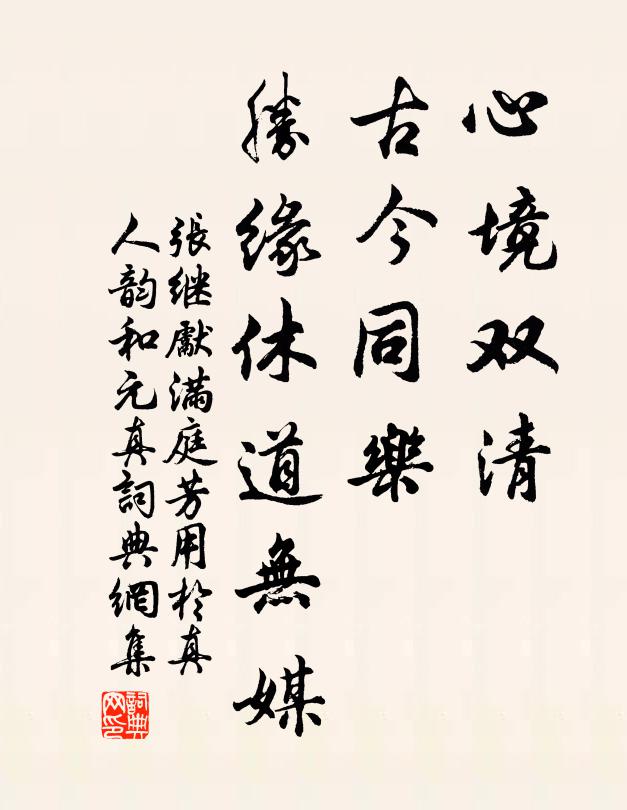 心境双清
古今同樂
勝緣休道無媒
張继獻滿庭芳用於真
人韵和元真詞典網集
詞典
网印